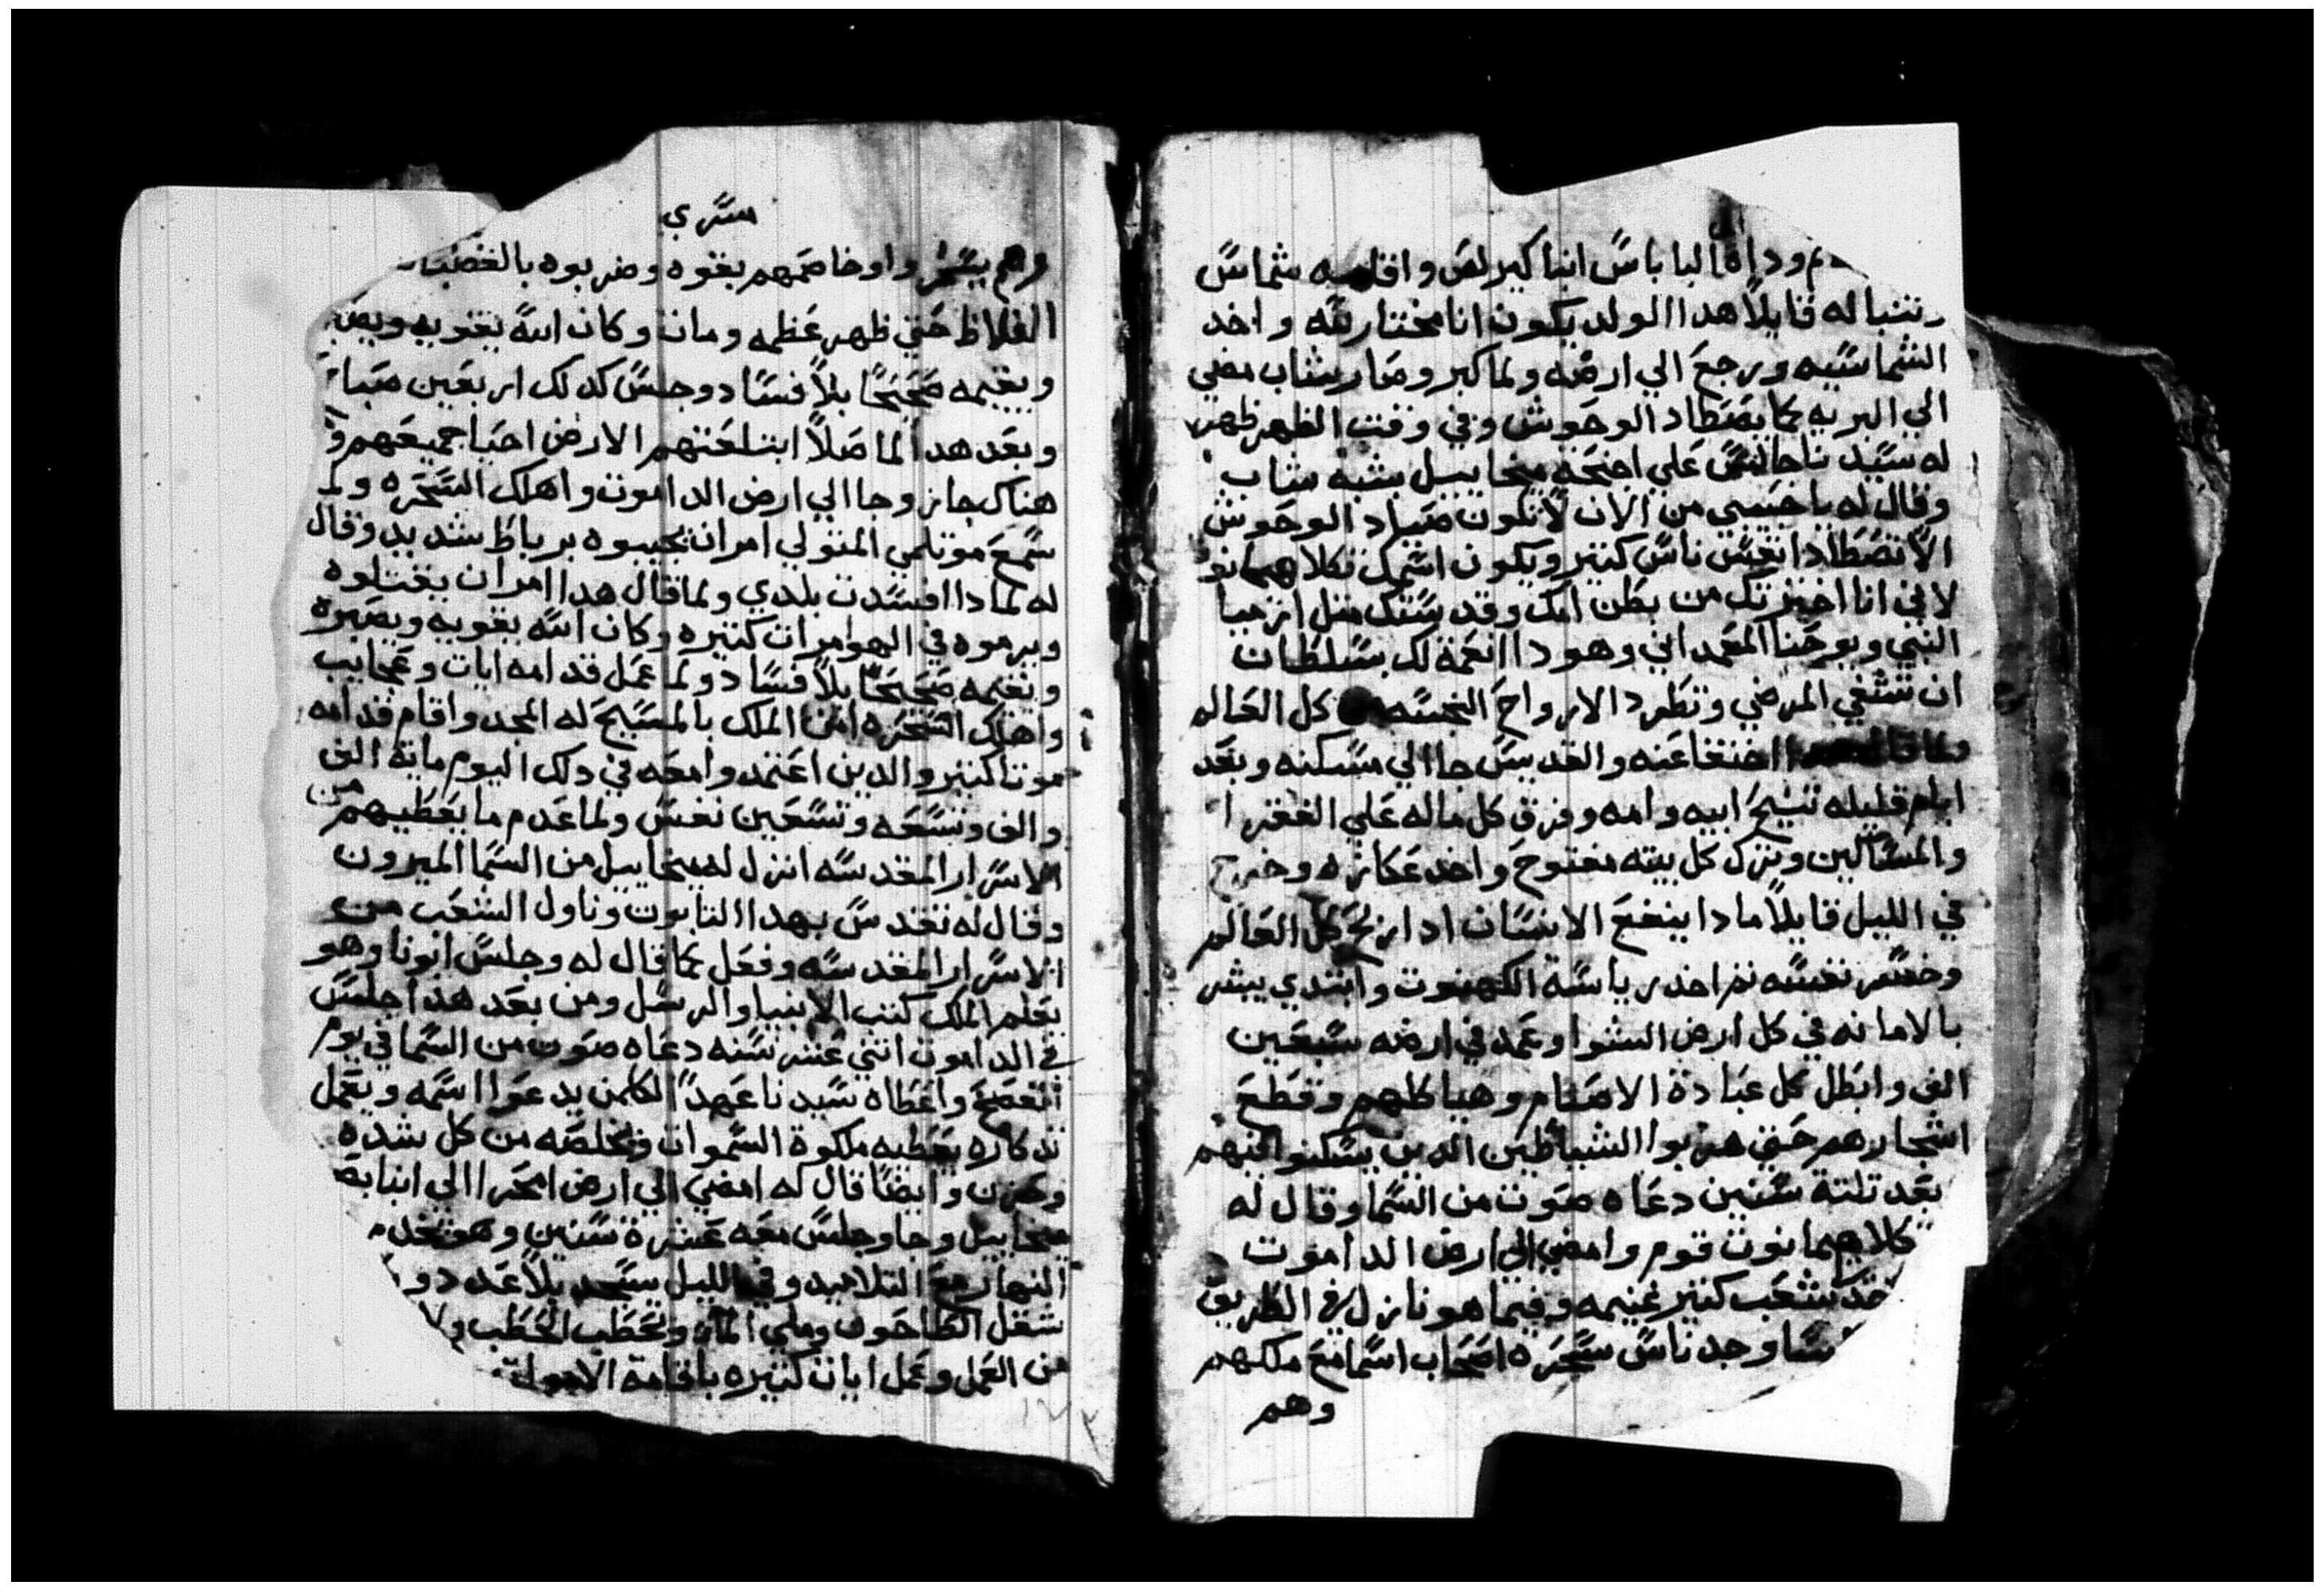 وداه البا باس انبا كيرلص واقامه شماس
وتنبا له قايلاً هدا الولد يكون انا مختار لله واخد
الشماسيه ورجع الي ارضه ولما كبر وصار شاب مضي
الي البريه كما يصطاد الوحوش وفي وقت الظهر ظهر
له سيدنا جالس علي اجنحة ميخاييل بشبه شاب
وقال له يا حبيبي من الان لا تكون صياد الوحوش
الا تصطاد انفس ناس كتير ويكون اسمك تكلا هيمانوت
لاني انا اخترتك من بطن امك وقدستك متل ارميا
النبي ويوحنا المعمداني وهودا انعمة لك بسلطان
ان تشفي المرضي وتطرد الارواح النجسه كل العالم
ولما قال هدا اختفا عنه والقديس جا الي مسكنه وبعد
ايام قليله تنيح ابيه وامه وفرق كل ماله علي الفقرا
والمساكين وترك كل بيته مفتوح واخد عكازه وخرج
في الليل قايلاً مادا ينفع الانسان ادا ربح كل العالم
وخسر نفسه تم اخد رياسة الكهنوت وابتدي يبشر
بالامانه في كل ارض الشوا وعمد في ارضه سبعين
الف وابطل كل عبادة الاصنام وهياكلهم وقطع
اشجارهم حتي هربوا الشياطين الدين يسكنوا فيهم
بعد تلتة سنين دعاه صوت من السما وقال له
تكلا هيمانوت قوم وامضي الي ارض الداموت
شعب كتير غنيمه وفيما هو نازل في الطريق
وجد ناس سحره اصحاب اسما مع ملكهم
وهم
ستري
وهم يسحروا وخاصمهم بقوه وضربوه بالغضب
الغلاظ حتي ظهر عظمه ومات وكان الله يقويه ويص
ويقيمه صحيحاً بلا فساد وجلس كدلك اربعين صباح
وبعد هدا لما صلا ابتلعتهم الارض احيا جميعهم و
هناك جاز وجا الي ارض الداموت واهلك السحره ولما
سمع موتلمي المتولي امر ان يجيبوه برباط شديد وقال
له لمادا افسدت بلدي ولما قال هدا امر ان يقتلوه
ويرموه في الهوا مرات كتيره وكان الله يقويه ويصبره
ويقيمه صحيحاً بلا فساد ولما عمل قدامه ايات وعجايب
واهلك السحره امن الملك بالمسيح له المجد واقام قدامه
موتا كتير والدين اعتمدوا معه في دلك اليوم ماية الف
والف وتسعه وتسعين نفس ولما عدم ما يعطيهم من
الاسرار المقدسه انزل له ميخاييل من السما الميرون
وقال له تقدس بهدا التابوت وناول الشعب من
الاسرار المقدسه وفعل كما قال له وجلس ابونا وهو
يعلم الملك كتب الانبيا والرسل ومن بعد هدا جلس
في الداموت اتني عشر سنه دعاه صوت من السما في يوم
الفصح واعطاه سيدنا عهداً لكلمن يدعوا اسمه ويعمل
تدكاره يعطيه ملكوة السموات ويخلصه من كل شده
وحزن وايضاً قال له امضي الي ارض امحرا الي انبا بص
ميخاييل وجا وجلس معه عشرة سنين وهو يخدم
النهار مع التلاميد وفي الليل يسجد بلا عدد و
شغل الطاحون وملي الما وتحطب الحطب ولا
من العمل وعمل ايات كتيره باقامة الاموات